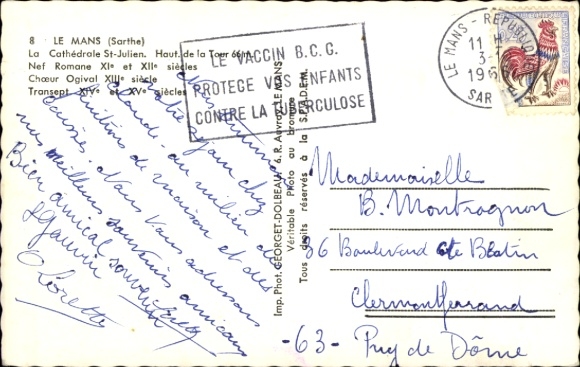 8 LE MANS (Sarthe)
La Cathédrale St-Julien. Haut. de la Tour 66 m.
Nef Romane XIe et XIIe siècles
Chœur Ogival XIIIe siècle
Transept XIVe et XVe siècles
LE VACCIN B.C.G.
PROTEGE VOS ENFANTS
CONTRE LA TUBERCULOSE
LE MANS - REPUBLIQUE
11 H
3-
196
SAR
Nous
juin chez
Claude - au milieu de
finitions de maison et des
caisses. Nous vous adressons
nos meilleurs souvenirs amicaux
Bien amical souvenir
Lorette
Imp. Phot. GEORGET-DOLBEAU, 6, R. Auvray, LE MANS
Véritable Photo au bromure
Tous droits réservés à la S.P.A.D.E.M.
Mademoiselle
B. Montragnon
36 Boulevard Cte Blatin
Clermont Ferrand
-63- Puy de Dôme